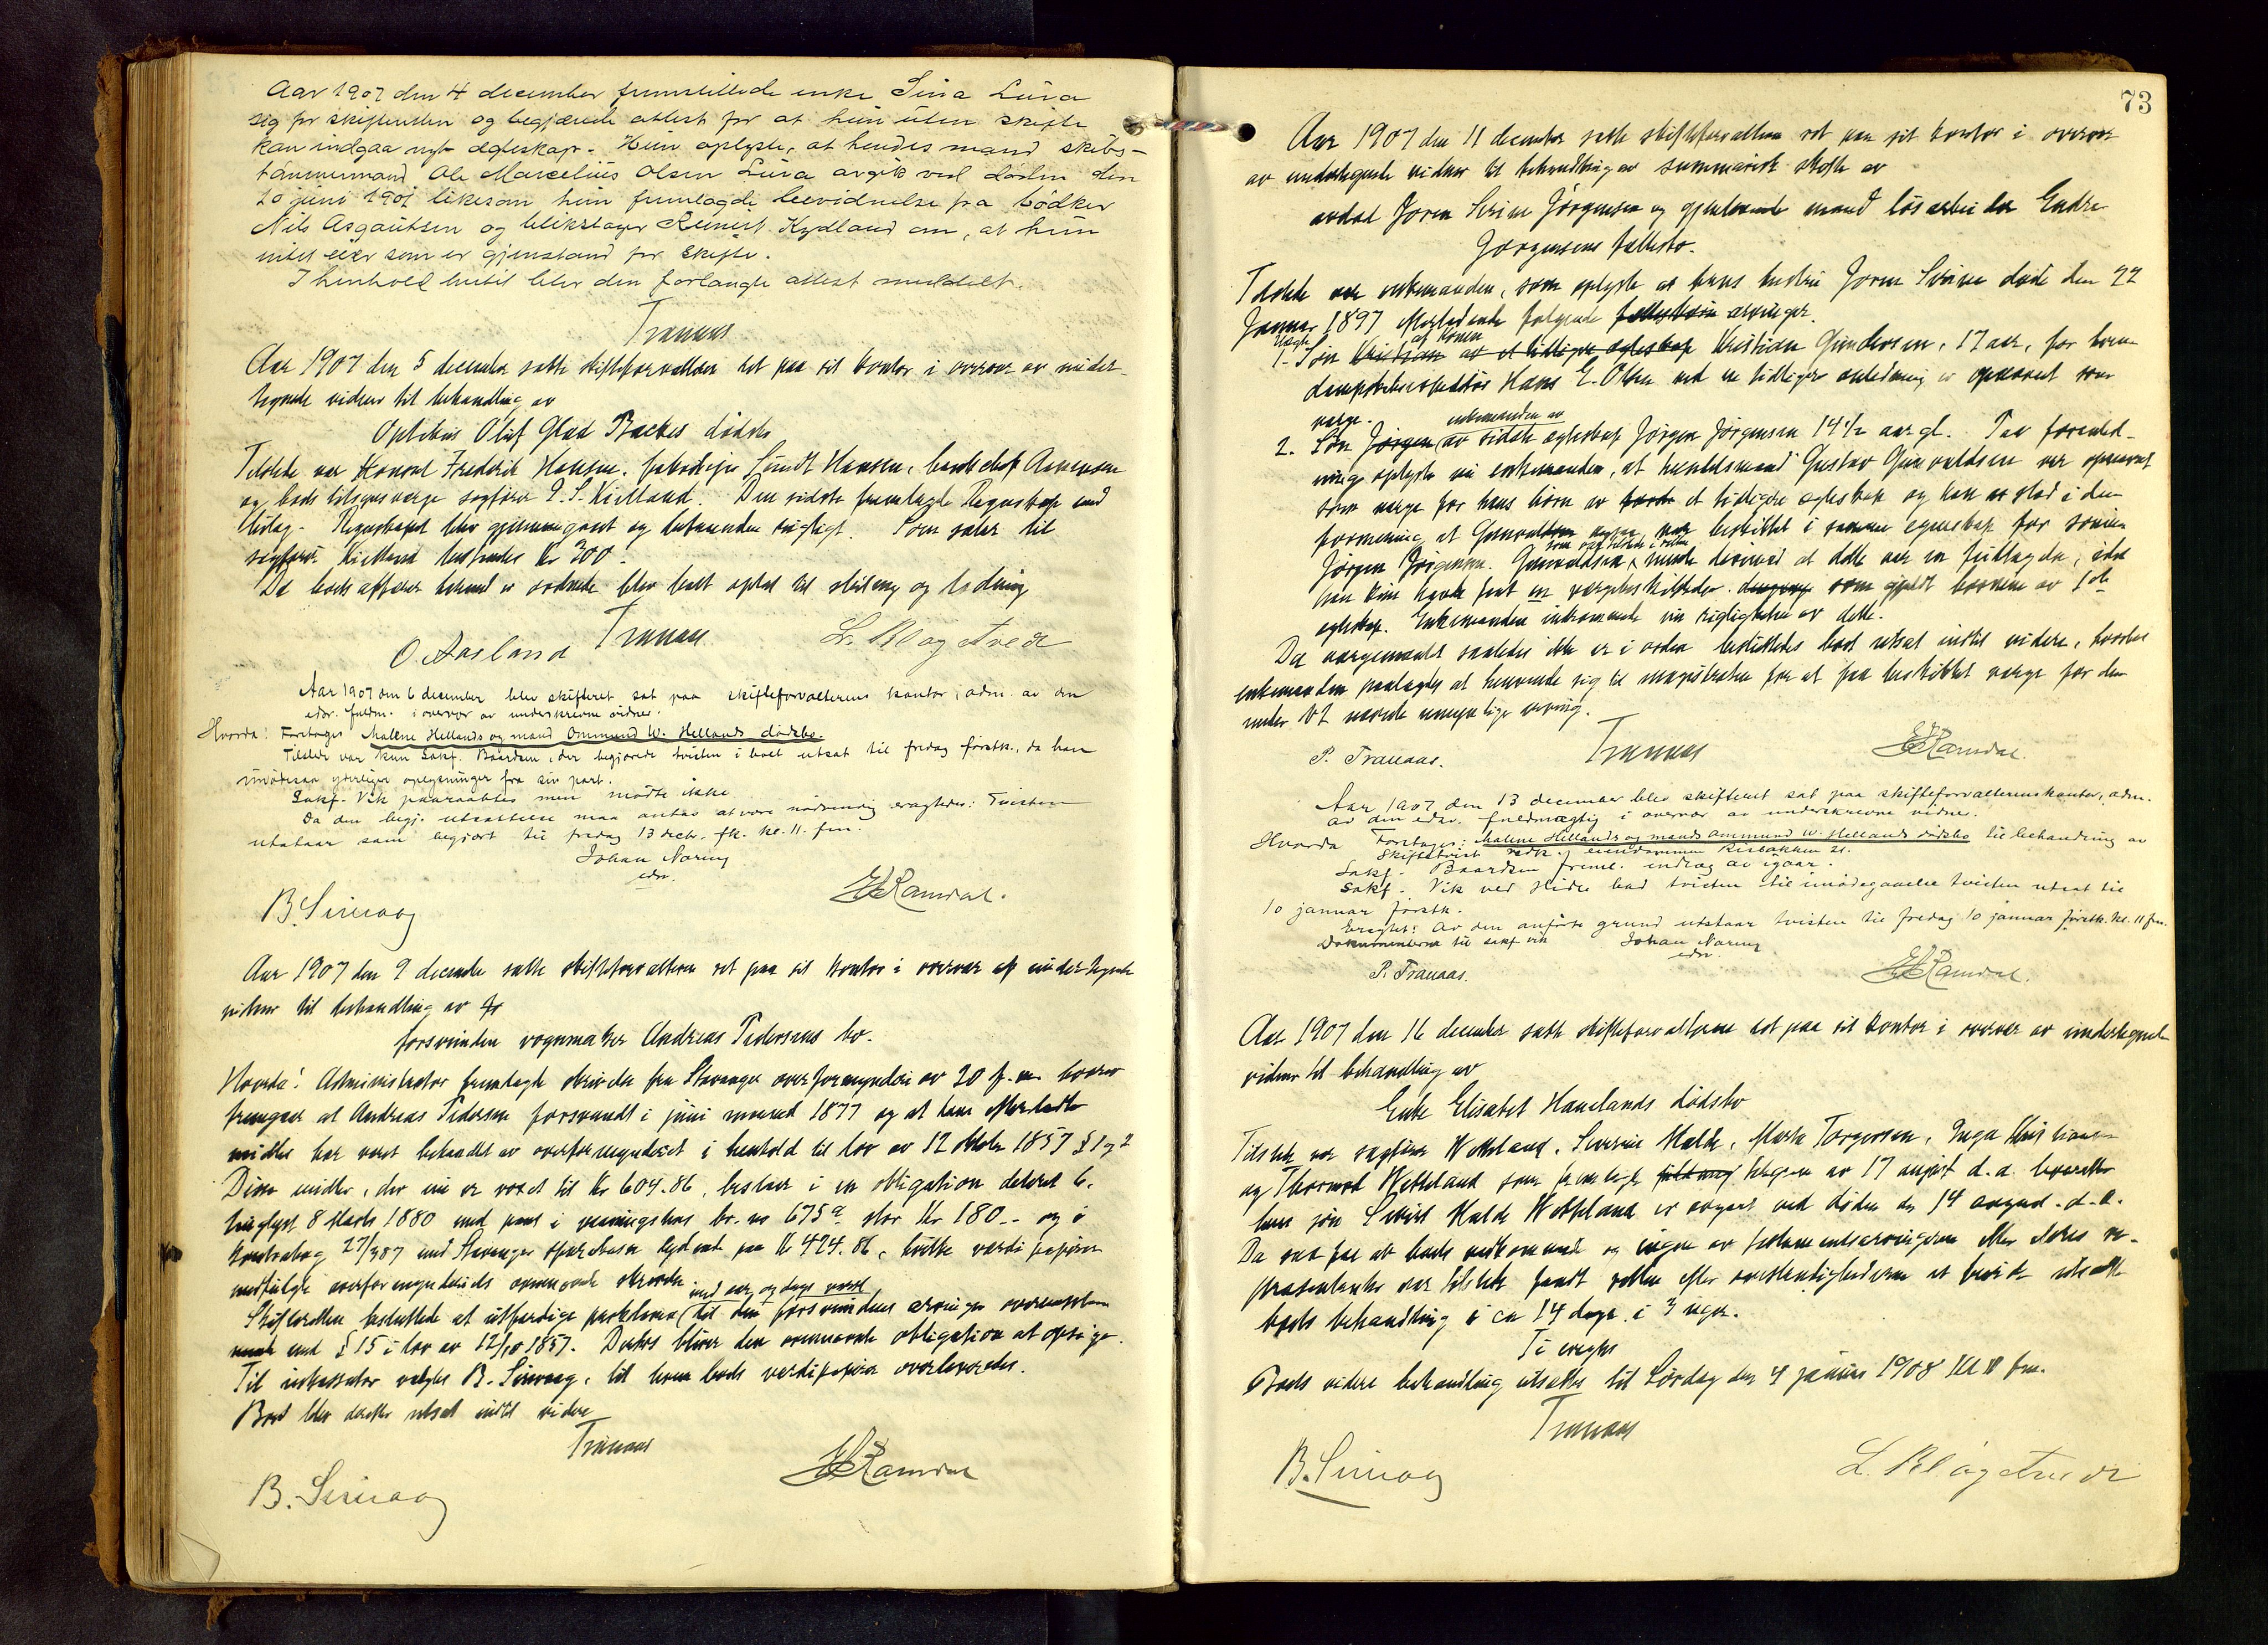 Aar 1907 den 4 december fremstillede enke Sina Lura
sig for skifteretten og begjærede attest for at hun uten skifte
kan indgaa nyt egteskap. Hun oplyste, at hendes mand skibs-
tømmermand Ole Marcelius Olsen Lura avgik ved døden den
20 juni 1901 likesom hun fremlagde bevidnelse fra bødker
Nils Asgautsen og blikslager Reinert Kydland om, at hun
intet eier som er gjenstand for skifte.
I henhold hertil blev den forlangte attest meddelt.
Tranaas
Aar 1907 den 5 december satte skifteforvalteren ret paa sit kontor i overvær av under-
tegnede vidner til behandling av
Optikus Oluf Glad Backes dødsbo
Tilstede var Konsul Fredrik Hansen, fabrikeier Sundt Hansen, bankchef Aanensen
og boets tilsynsverge sagfører P. S. Kielland. Den sidste fremlagde Regnskap med
bilag. Regnskapet blev gjennemgaaet og befundet rigtigt. Som salær til
sagfører Kielland tilstodes Kr 300.
Da boets affærer dermed er ordnede blev boet optat til slutning og lodning
O. Aasland Tranaas L. Bløgstvedt
Aar 1907 den 6 december blev skifteret sat paa skifteforvalterens kantor, adm. av den
edsv. fuldm. i overvær av underskrevne vidner.
Hvorda: Foretages Malene Hellands og mand Ommund W. Hellands dødsbo.
Tilstede var kun Sakf. Baardsen, der begjærede tvisten i boet utsat til fredag førstk., da han
imøtesaa yderligere oplysninger fra sin part.
Sakf. Vik paaraabtes men mødte ikke
Da den begj. utsættelse maa antas at være nødvendig eragtedes: Tvisten
utstaar som begjært til fredag 13 decbr. fk. kl. 11. fm.
Johan Næring
edsv.
B. Sirevaag E Ramdal.
Aar 1907 den 9 december satte skifteforvalteren ret paa sit kontor i overvær af undertegnede
vidner til behandling av
forsvunden vognmaker Andreas Pedersens bo.
Hvorda: Administrator fremlagde skrivelse fra Stavanger overformynderi av 20 f.m. hvorav
fremgaar at Andreas Pedersen forsvandt i juni maaned 1877 og at hans efterladte
midler har været behandlet av overformynderiet i henhold til lov av 12 oktober 1857 § 1 og 2
Disse midler, der nu er voxet til Kr 604.86, bestaar i en obligation dateret 6.
tinglyst 8 Marts 1880 med pant i vaaningshus br. no 675a stor Kr 180.- og i
kontrabog 27/387 med Stavanger sparekasse lydende paa Kr 424.86, hvilke værdipapirer
medfulgte overformynderiets ovennævnte skrivelse
Skifteretten besluttede at utfærdige proklama med aar og dags varsel til den forsvundnes arvinger overensstem-
mende med § 15 i lov av 12/10 1857. Derhos bliver den ovennævnte obligation at opsige.
Til inkassator valgtes B. Sirevaag, til hvem boets verdipapirer overleveredes.
Boet blev derefter utsat indtil videre
Tranaas
B. Sirevaag E Ramdal
73
Aar 1907 den 11 december satte skifteforvalteren ret paa sit kontor i overvær
av undertegnede vidner til behandling av summarisk skifte av
avdøde Joren Serine Jørgensen og gjenlevende mand løsarbeider Endre
Jørgensens fællesbo.
Tilstede var enkemanden, som oplyste at hans hustru Joren Serine døde den 22
Januar 1897 efterladende følgende arvinger.
1. Søn Kristian av et tidligere egteskap Kristian Gundersen, 17 aar, for hvem
dampskibsexpeditør Hans E. Olsen ved en tidligere anledning er opnævnt som
verge.
2. Søn Jørgen av enkemanden av sidste egteskap Jørgen Jørgensen 14 1/2 aar gl. Paa foranled-
ning oplyste nu enkemanden, at handelsmand Gustav Gunvaldsen var opnævnt
som verge for hans børn av et tidligere egteskap og han stod i den
formening at Gunvaldsen var beskikket i samme egenskap for sønnen
Jørgen Jørgensen. Gunvaldsen som var tilstede i retten mente derimod at dette var en feiltagelse, idet
han kun havde faat en vergebeskikkelse som gjaldt barnene av 1ste
egteskap. Enkemanden indrømmede nu rigtigheten av dette.
Da vergemaalet saaledes ikke er i orden besluttedes boet utsat indtil videre, hvorhos
enkemanden paalagdes at henvende sig til magistraten for at faa beskikket verge for den
under № 2 nævnte umyndige arving.
P. Tranaas. Tranaas E Ramdal.
Aar 1907 den 13 december blev skifteret sat paa skifteforvalterens kantor, adm.
av den edsv. fuldmægtig i overvær av underskrevne vidner.
Hvorda Foretages: Malene Hellands og mands Ommund W. Hellands dødsbo til behandling av
Skiftetvist vedk. eiendommen Kirkebakken 21.
Sakf. Baardsen freml. indlæg av igaar.
Sakf. Vik ved Hidle bad tvisten til imødegaaelse tvisten utsat til
10 januar førstk.
Eragtet: Av den anførte grund utstaar tvisten til fredag 10 januar førstk. kl. 11 fm.
Dokumenterne til sakf. Vik Johan Næring
edsv.
P. Tranaas. E Ramdal.
Aar 1907 den 16 december satte skifteforvalteren ret paa sit kontor i overvær av undertegnede
vidner til behandling av
Enke Elisabet Hauelands dødsbo
Tilstede var sagfører Wetteland, Severin Malde, Marta Torgersen, Inga Kristiansen
og Thormod Wetteland som fremlagde telegram av 17 august d.a. hvorefter
hans søn Sivert Malde Wetteland er avgaat ved døden den 14 august d.a.
Da saa faa av boets vedkommende og ingen av testamentsarvingerne eller deres re-
præsentanter var tilstede fandt retten efter omstændighederne at burde utsætte
boets behandling i ca 14 dage. i 3 uger.
Ti eragtes
Boets videre behandling utsættes til Lørdag den 4 januar 1908 Kl 11 fm.
Tranaas
B. Sirevaag L. Bløgstvedt